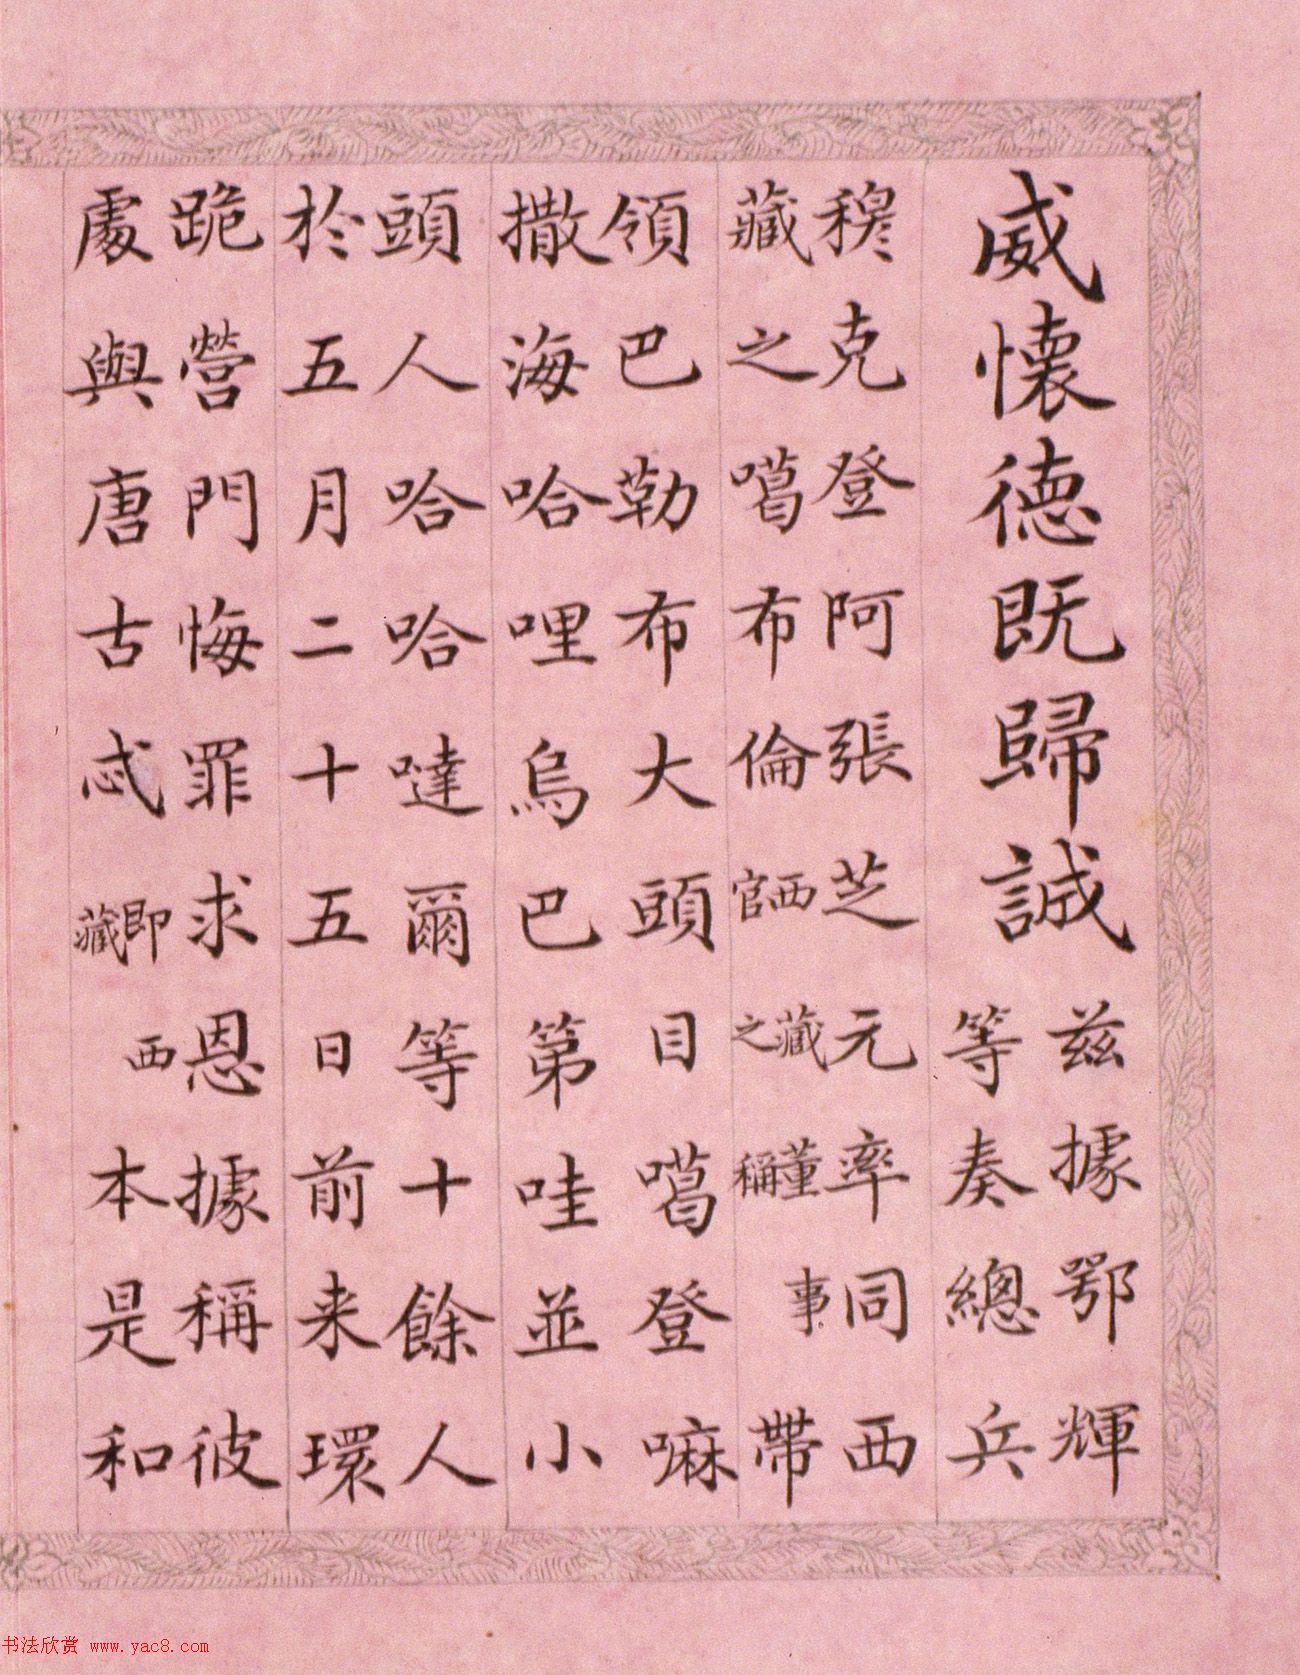 威懷德既歸誠
兹據鄂輝
等奏總兵
穆克登阿張芝元率同西
藏之噶布倫西藏董事官之稱帶
領巴勒布大頭目噶登嘛
撒海哈哩烏巴第哇並小
頭人哈哈噠爾等十餘人
於五月二十五日前来環
跪營門悔罪求恩據稱彼
處與唐古忒即西藏本是和
书法欣赏 www.yac8.com